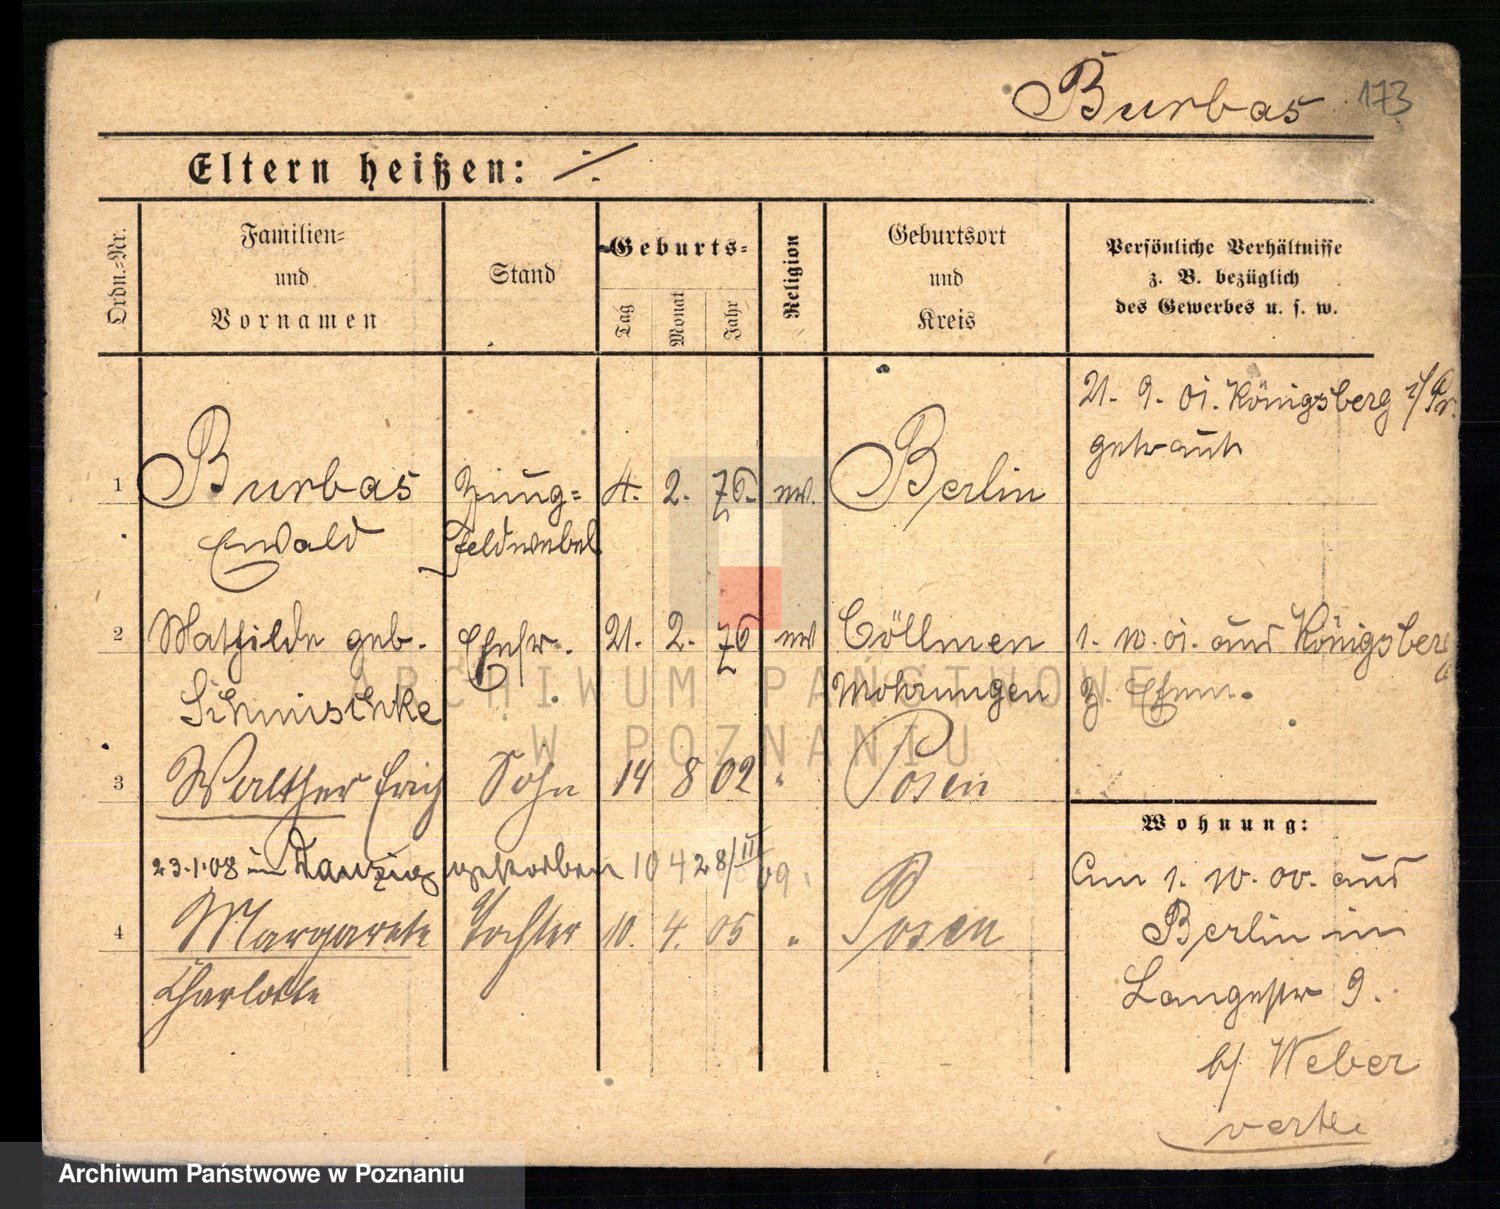 Burbas 173
Eltern heißen: ·/.
Ordn.=Nr.
Familien=
und
Vornamen
Stand
Geburts=
Tag
Monat
Jahr
Religion
Geburtsort
und
Kreis
Persönliche Verhältnisse
z. B. bezüglich
des Gewerbes u. s. w.
21. 9. 01. Königsberg i/Pr.
getraut
1 Burbas Zeug= 4. 2. 76. ev. Berlin
Ewald Feldwebel
2 Mathilde geb. Ehefr. 21. 2. 76 ev Cöllmen 1. 10. 01. aus Königsberg
Schmischke Mohrungen z. Ehem.
3 Walther Erich Sohn 14 8 02 " Posen
Wohnung:
23.1.08 in Danzig gestorben 10 4 28/III 09.
Am 1. 10. 00. aus
4 Margarete Tochter 10. 4. 05 " Posen
Berlin in
Charlotte
Langestr 9.
b/ Weber
verte
ARCHIWUM PAŃSTWOWE
W POZNANIU
Archiwum Państwowe w Poznaniu